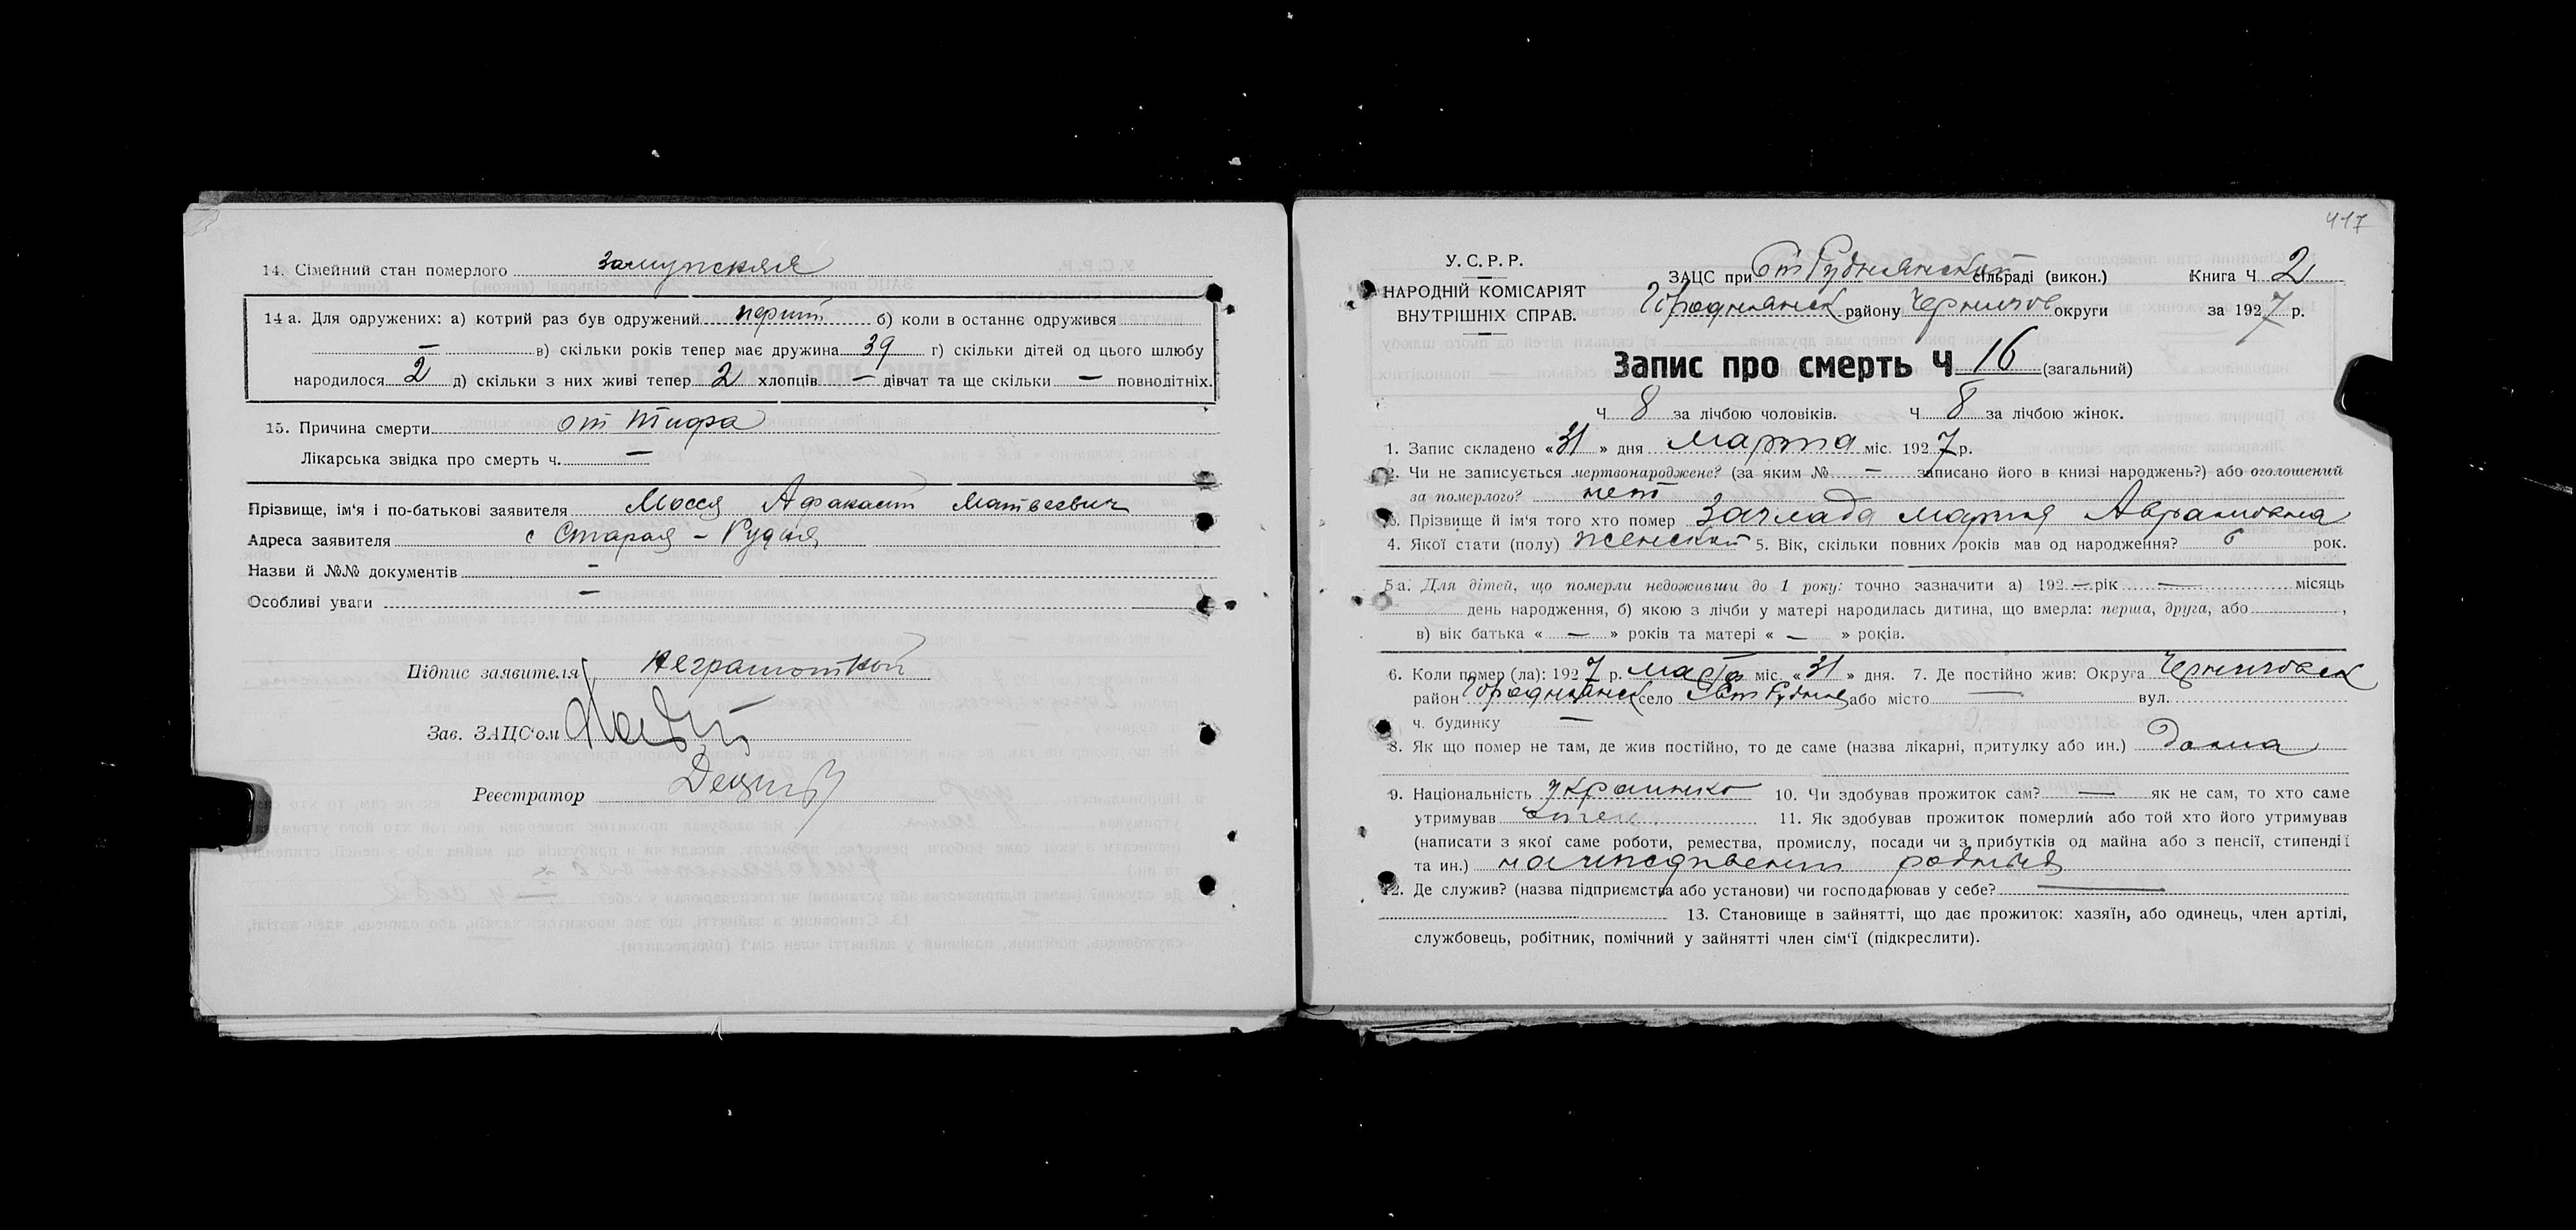 14. Сімейний стан померлого замужняя
14 а. Для одружених: а) котрий раз був одружений перший б) коли в останнє одружився
— в) скільки років тепер має дружина 39 г) скільки дітей од цього шлюбу
народилося 2 д) скільки з них живі тепер 2 хлопців — дівчат та ще скільки — повнолітніх.
15. Причина смерти от тифа
Лікарська звідка про смерть ч. —
Прізвище, ім'я і по-батькові заявителя Матвеевич
Адреса заявителя с Старая - Рудня
Назви й №№ документів -
Особливі уваги —
Підпис заявителя неграмотной
Зав. ЗАЦС'ом
Реєстратор
417
У. С. Р. Р.
НАРОДНІЙ КОМІСАРІЯТ
ВНУТРІШНІХ СПРАВ.
ЗАЦС при сільраді (викон.) Книга Ч 2
Городнянск району Чернигов округи за 1927 р.
Запис про смерть Ч 16 (загальний)
Ч 8 за лічбою чоловіків. Ч 8 за лічбою жінок.
1. Запис складено «31» дня марта міс. 1927 р.
2. Чи не записується мертвонароджене? (за яким № — записано його в книзі народжень?) або оголошений
за померлого? нет
3. Прізвище й ім'я того хто помер Заглада Мария Аврамовна
4. Якої стати (полу) женской 5. Вік, скільки повних років мав од народження? 6 рок.
5 а. Для дітей, що померли недоживши до 1 року: точно зазначити а) 192 — рік — місяць
день народження, б) якою з лічби у матері народилась дитина, що вмерла: перша, друга, або ,
в) вік батька « — » років та матері « — » років.
6. Коли помер (ла): 1927 р. марта міс. «31» дня. 7. Де постійно жив: Округа Черниговск
район Городнянск село Рудня або місто — вул.
ч. будинку —
8. Як що помер не там, де жив постійно, то де саме (назва лікарні, притулку або ин.) дома
9. Національність украинка 10. Чи здобував прожиток сам? — як не сам, то хто саме
утримував отец 11. Як здобував прожиток померлий або той хто його утримував
(написати з якої саме роботи, ремества, промислу, посади чи з прибутків од майна або з пенсії, стипендії
та ин.) на иждивении родных
12. Де служив? (назва підприємства або установи) чи господарював у себе? —
13. Становище в зайнятті, що дає прожиток: хазяїн, або одинець, член артілі,
службовець, робітник, помічний у зайнятті член сім'ї (підкреслити).